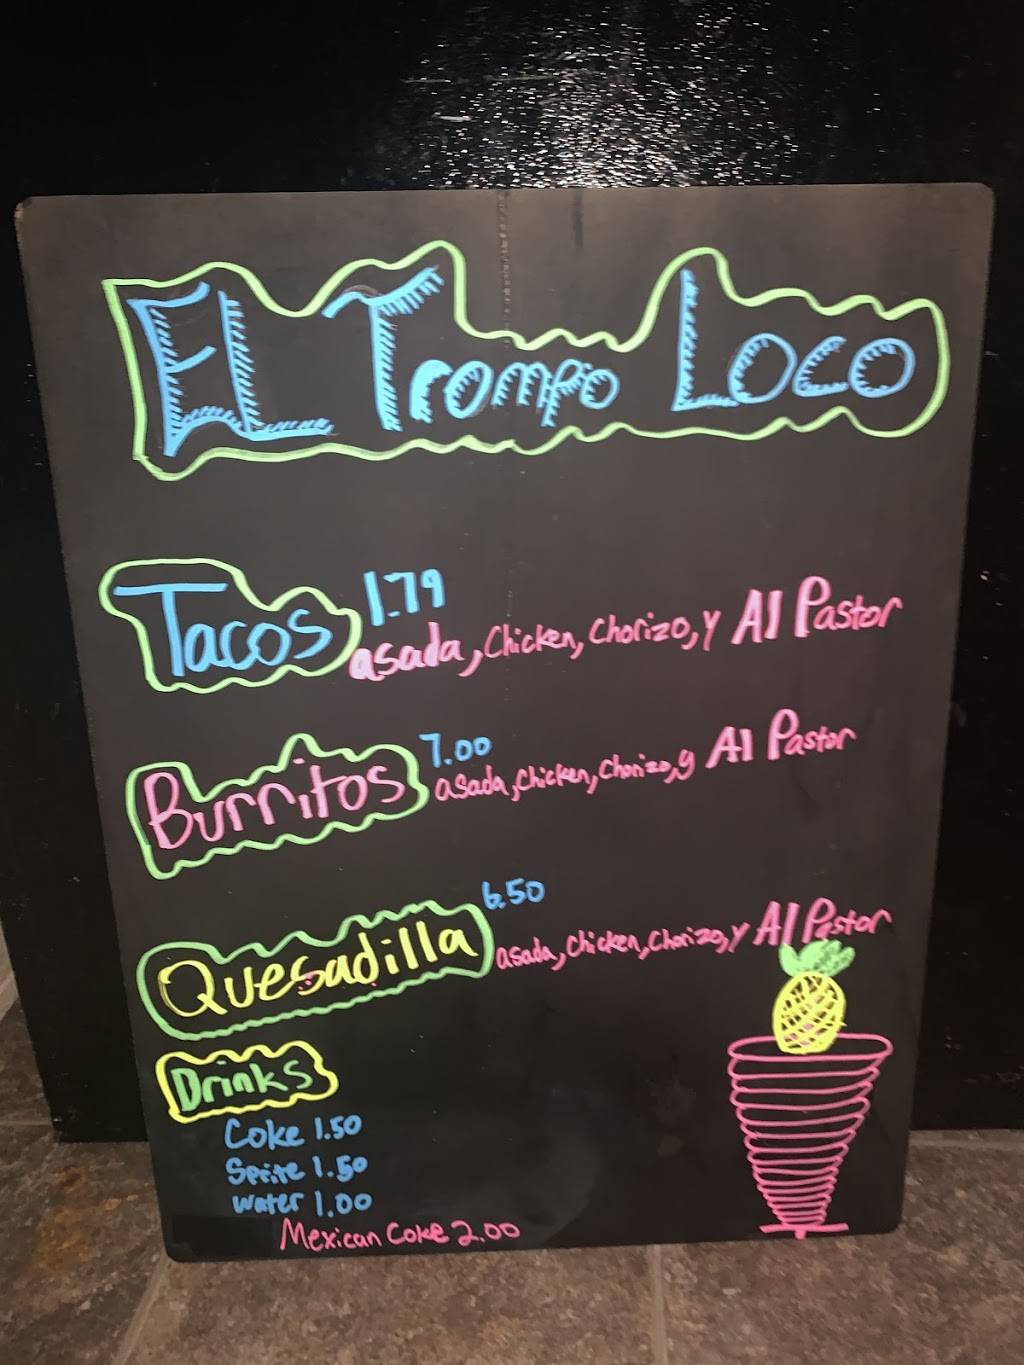 EL Trompo Loco
Tacos 1.79
asada, Chicken, Chorizo, y Al Pastor
Burritos 7.00
asada, Chicken, Chorizo, y Al Pastor
Quesadilla 6.50
asada, Chicken, Chorizo, y Al Pastor
Drinks
Coke 1.50
Sprite 1.50
water 1.00
Mexican Coke 2.00